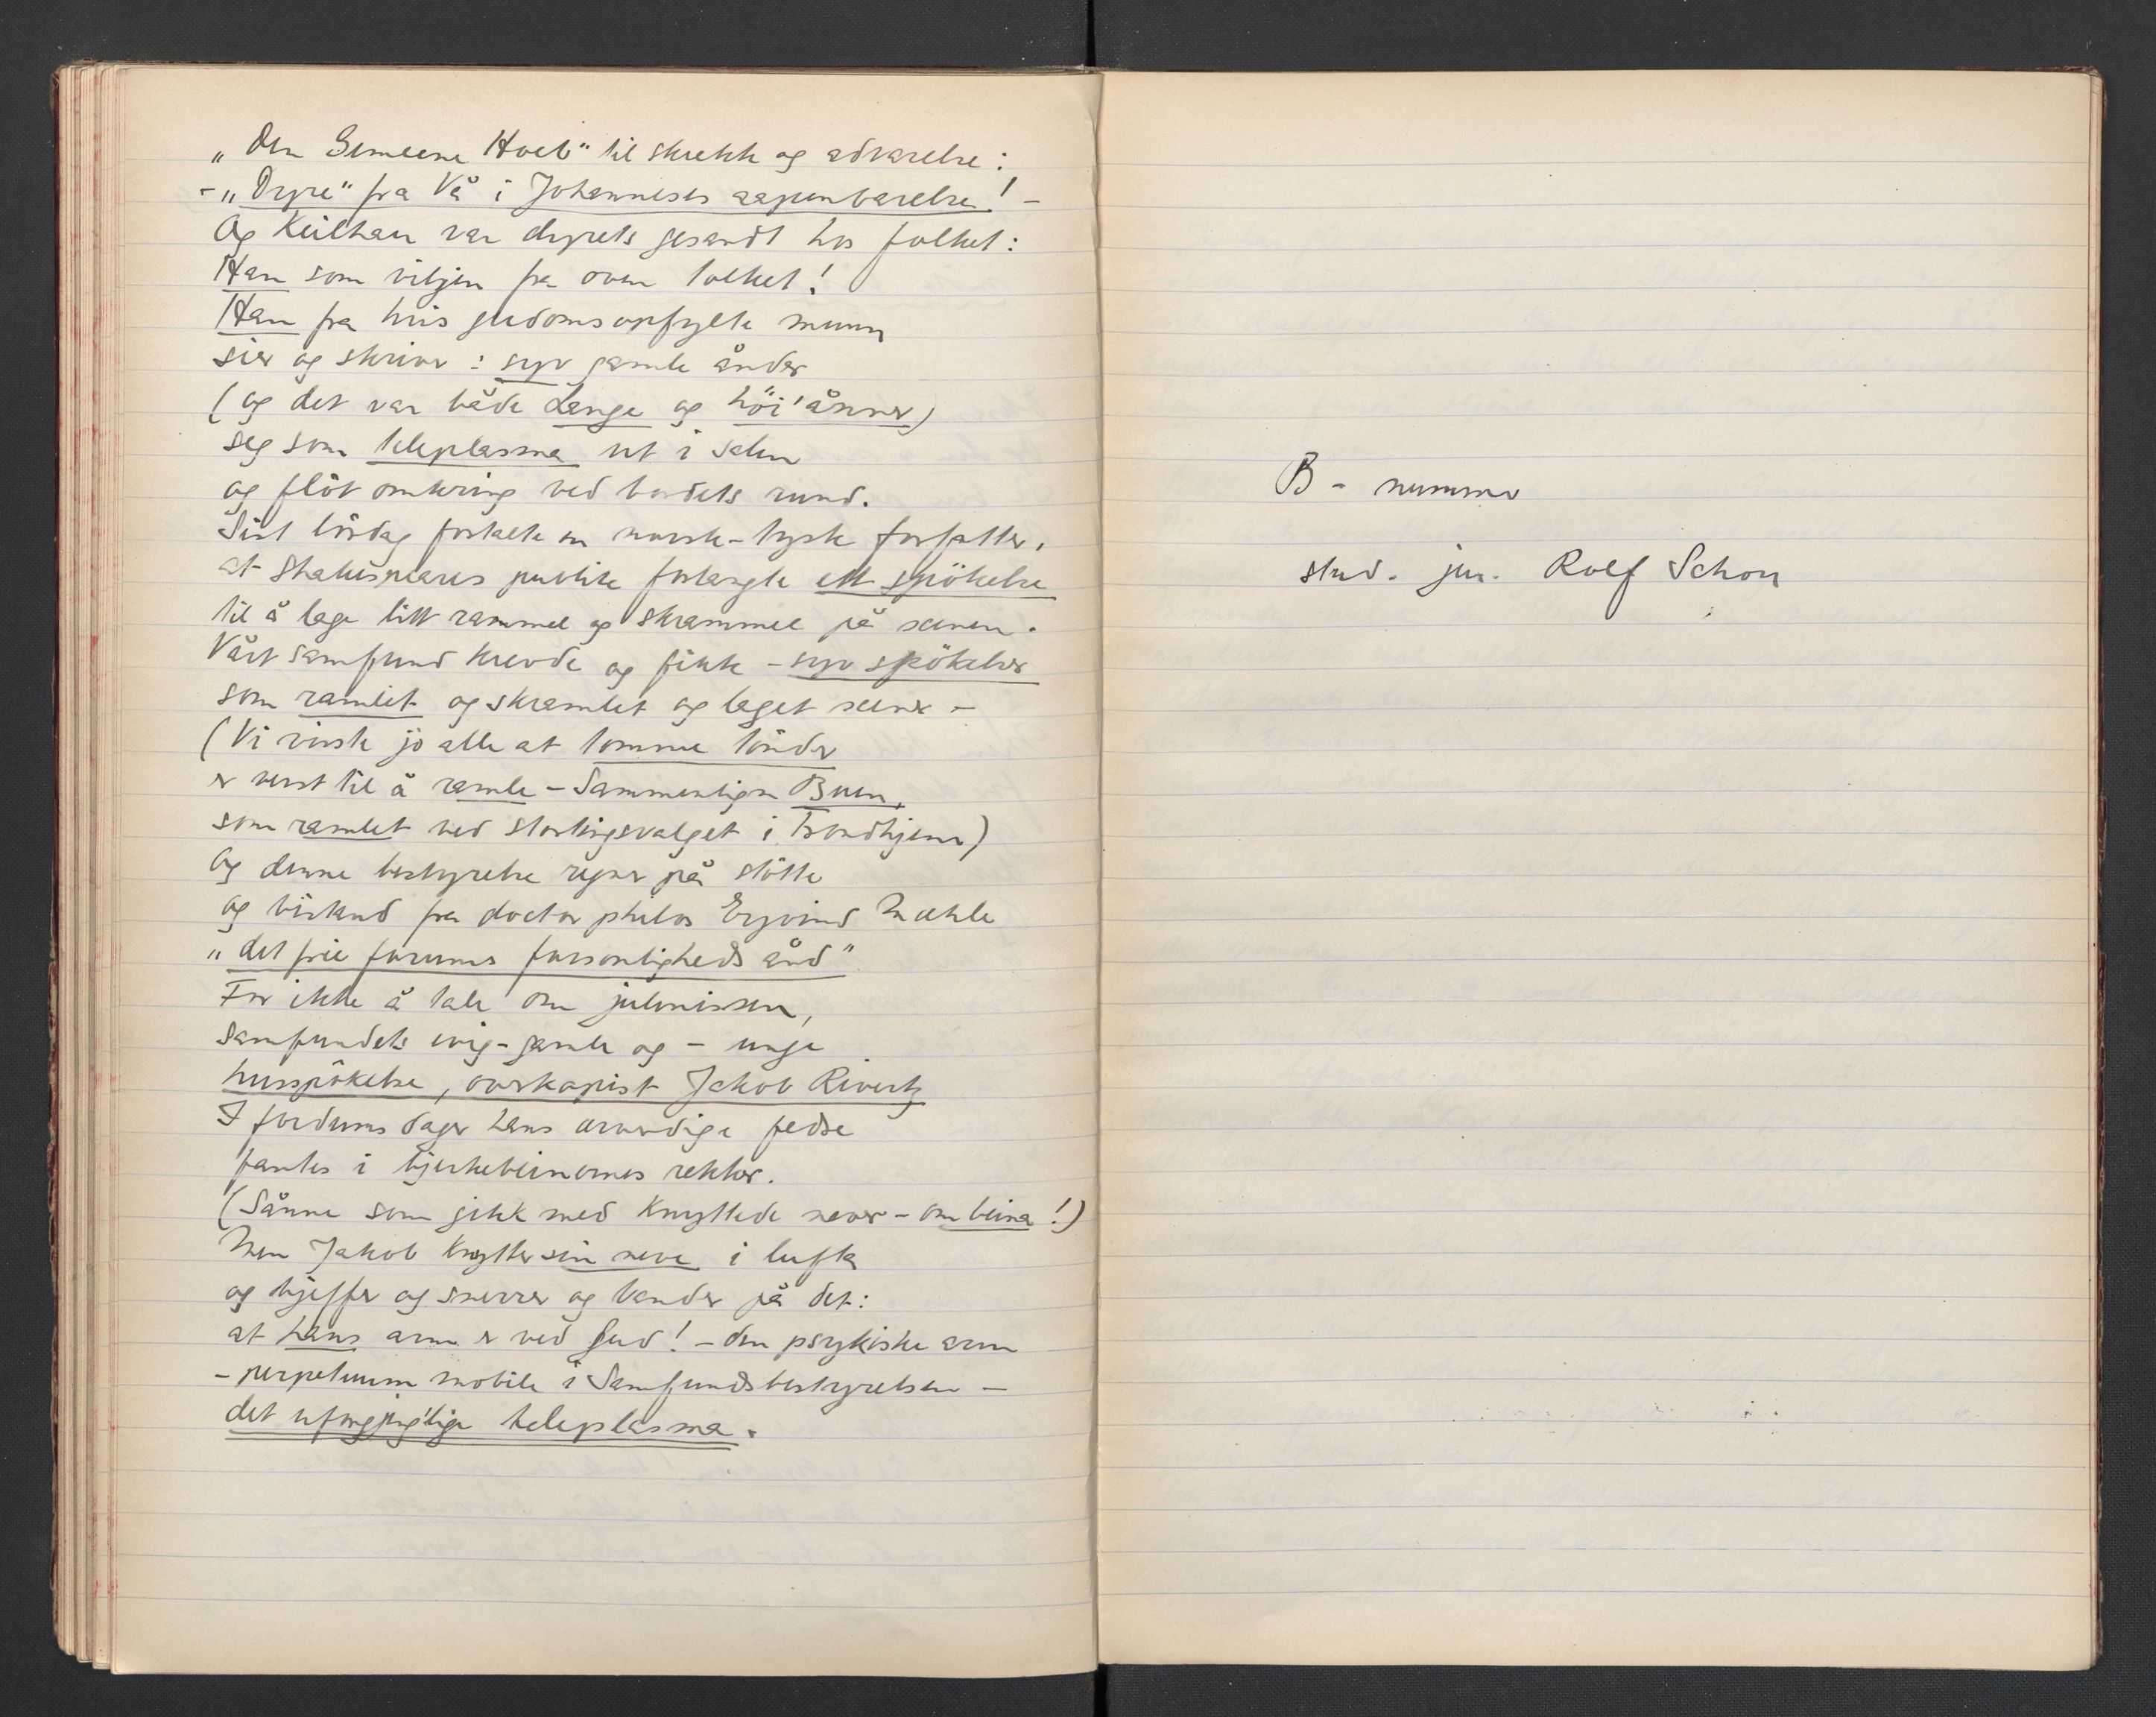 „Den Gemeene Hoel" til skrekk og advarelse:
- „Dyre" fra Vå i Johanneses aapenbarelse! -
Og Keilhau var dyrets gesandt hos folket:
Han som viljen fra oven tolket!
Han fra hvis gudomsopfylte munn
sier og skriver: syv gamle ånder
(og det var både Lange og höi'ånner)
seg som teleplasma ut i salen
og flöt omkring ved bordets rund.
Sist lördag fortalte en norsk-tysk forfatter,
at Shakespeares publik forlangte ett spökelse
til å lage litt rammel og skrammel på scenen.
Vårt samfund krevde og fikk - syv spökelser
som ramlet og skramlet og laget scener -
(Vi visste jo alle at tomme tönder
er verst til å ramle - Sammenlign Buen,
som ramlet ved stortingsvalget i Trondhjem)
Og denne bestyrelse regner på stötte
og bistand fra doctor philos Eyvind Mæhle
„det frie forums forsonligheds ånd"
For ikke å tale om julenissen,
samfundets evig-gamle og - unge
husspökelse, overkopist Jakob Rivertz
I fordums dager hans ærverdige fedre
fantes i bjerkebeinernes rekker.
(Sånne som gikk med knyttede never - om beina!)
Men Jakob knytter sin neve i lufta
og bjeffer og snerrer og bander på det:
at hans arm er ved Gud! - den psykiske arm
- perpetuum mobile i Samfundsbestyrelsen -
det uforgjeng'lige teleplasma.
B - nummer
stud. jur. Rolf Schou